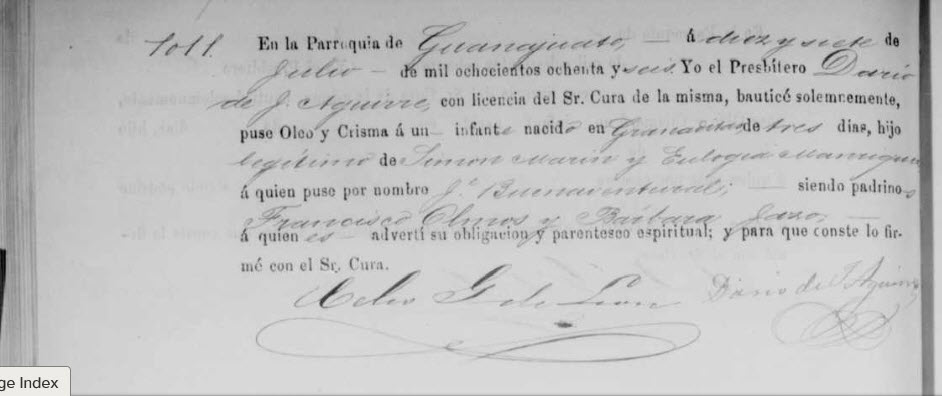 1011. En la Parroquia de Guanajuato, á diez y siete de
Julio de mil ochocientos ochenta y seis. Yo el Presbítero Dario
de J. Aguirre, con licencia del Sr. Cura de la misma, bauticé solemnemente,
puse Oleo y Crisma á un infante nacido en Granaditas de tres dias, hijo
legítimo de Simon Marin y Eulogia Manrique
á quien puse por nombre J. Buenaventura; siendo padrinos
Francisco Olmos y Bárbara
á quienes advertí su obligacion y parentesco espiritual; y para que conste lo fir-
mé con el Sr. Cura.
G. de Leon Dario de J. Aguirre
ge Index